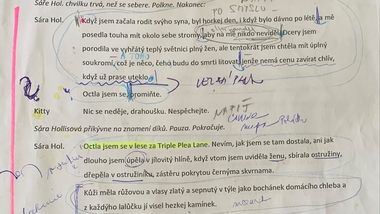 PO SMYSLU
Sáře Hol. chvilku trvá, než se sebere. Polkne. Nakonec:
Sára Hol. Když jsem začala rodit svýho syna, byl horkej den, i když bylo dávno po létě, a mě
posedla touha mít okolo sebe stromy, aby na mě nikdo neviděl. Dcery jsem
porodila ve vyhřátý teplý světnici plný žen, ale tentokrát jsem chtěla mít úplný
soukromí, což je něco, čeho budu do smrti litovat, jenže nemá cenu zavírat chlív,
když už prase uteklo.
Octla jsem se, promiňte.
Kitty Nic se neděje, drahoušku. Nespěchejte.
NAPIŠ
Sára Hollisová přikývne na znamení díků. Pauza. Pokračuje.
Sára Hol. Octla jsem se v lese za Triple Plea Lane. Nevím, jak jsem se tam dostala, ani jak
dlouho jsem úpěla v jílovitý hlíně, když vtom jsem uviděla ženu, sbírala ostružiny,
dřepěla v ostružiníku, zástěru pokrytou černýma skvrnama.
Kůži měla růžovou a vlasy zlatý a sepnutý v týle jako bochánek domácího chleba a
z každýho lalůčku jí visel hezkej kamínek.